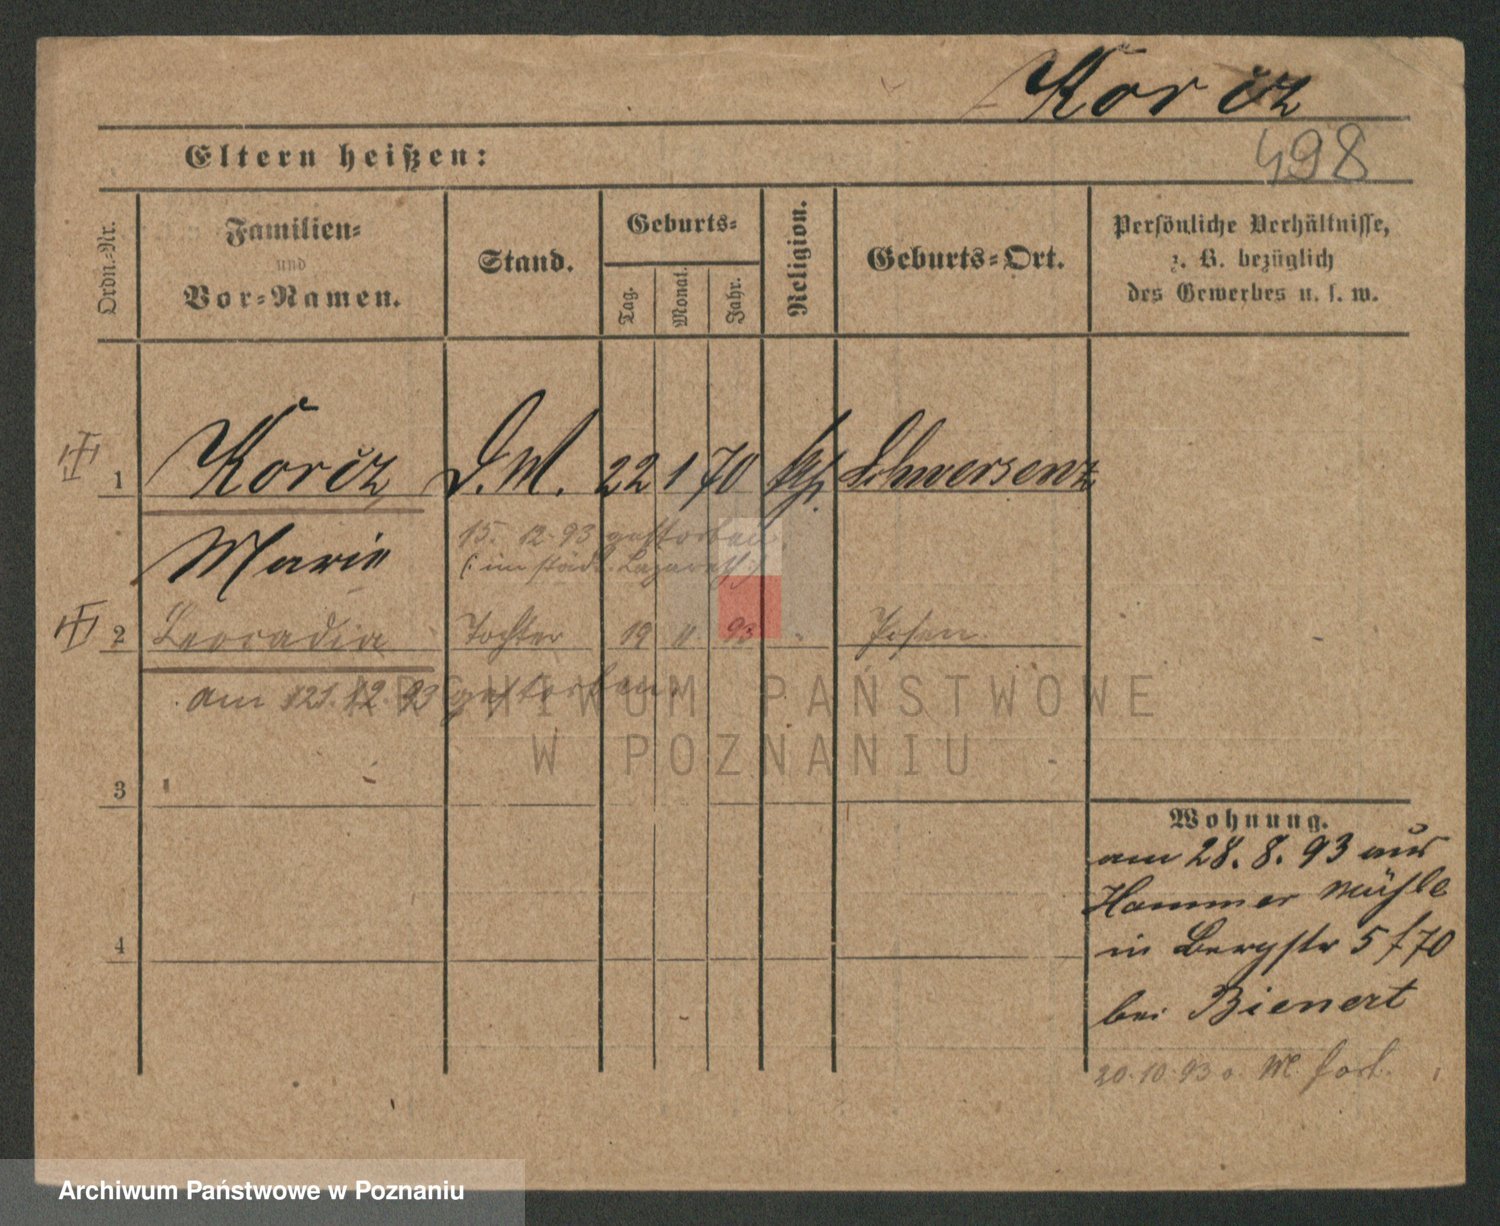 Korcz
Eltern heißen:
498
Ordn.-Nr.
Familien-
und
Vor-Namen.
Stand.
Geburts-
Tag.
Monat.
Jahr.
Religion.
Geburts-Ort.
Persönliche Verhältnisse,
z. B. bezüglich
des Gewerbes u. s. w.
1 Korcz D.M. 22 1 70 kth Schwersenz
Marie
15. 12. 93 gestorben
(: im städt. Lazareth :)
2 Leocadia Tochter 19 11 93 " Posen.
am 21. 12. 93 gestorben.
ARCHIWUM PAŃSTWOWE
W POZNANIU
3
4
Wohnung.
am 28. 8. 93 aus
Hammer Mühle
in Bergstr 5 f 70
bei Bienert
20. 10. 93 o. M fort.
Archiwum Państwowe w Poznaniu